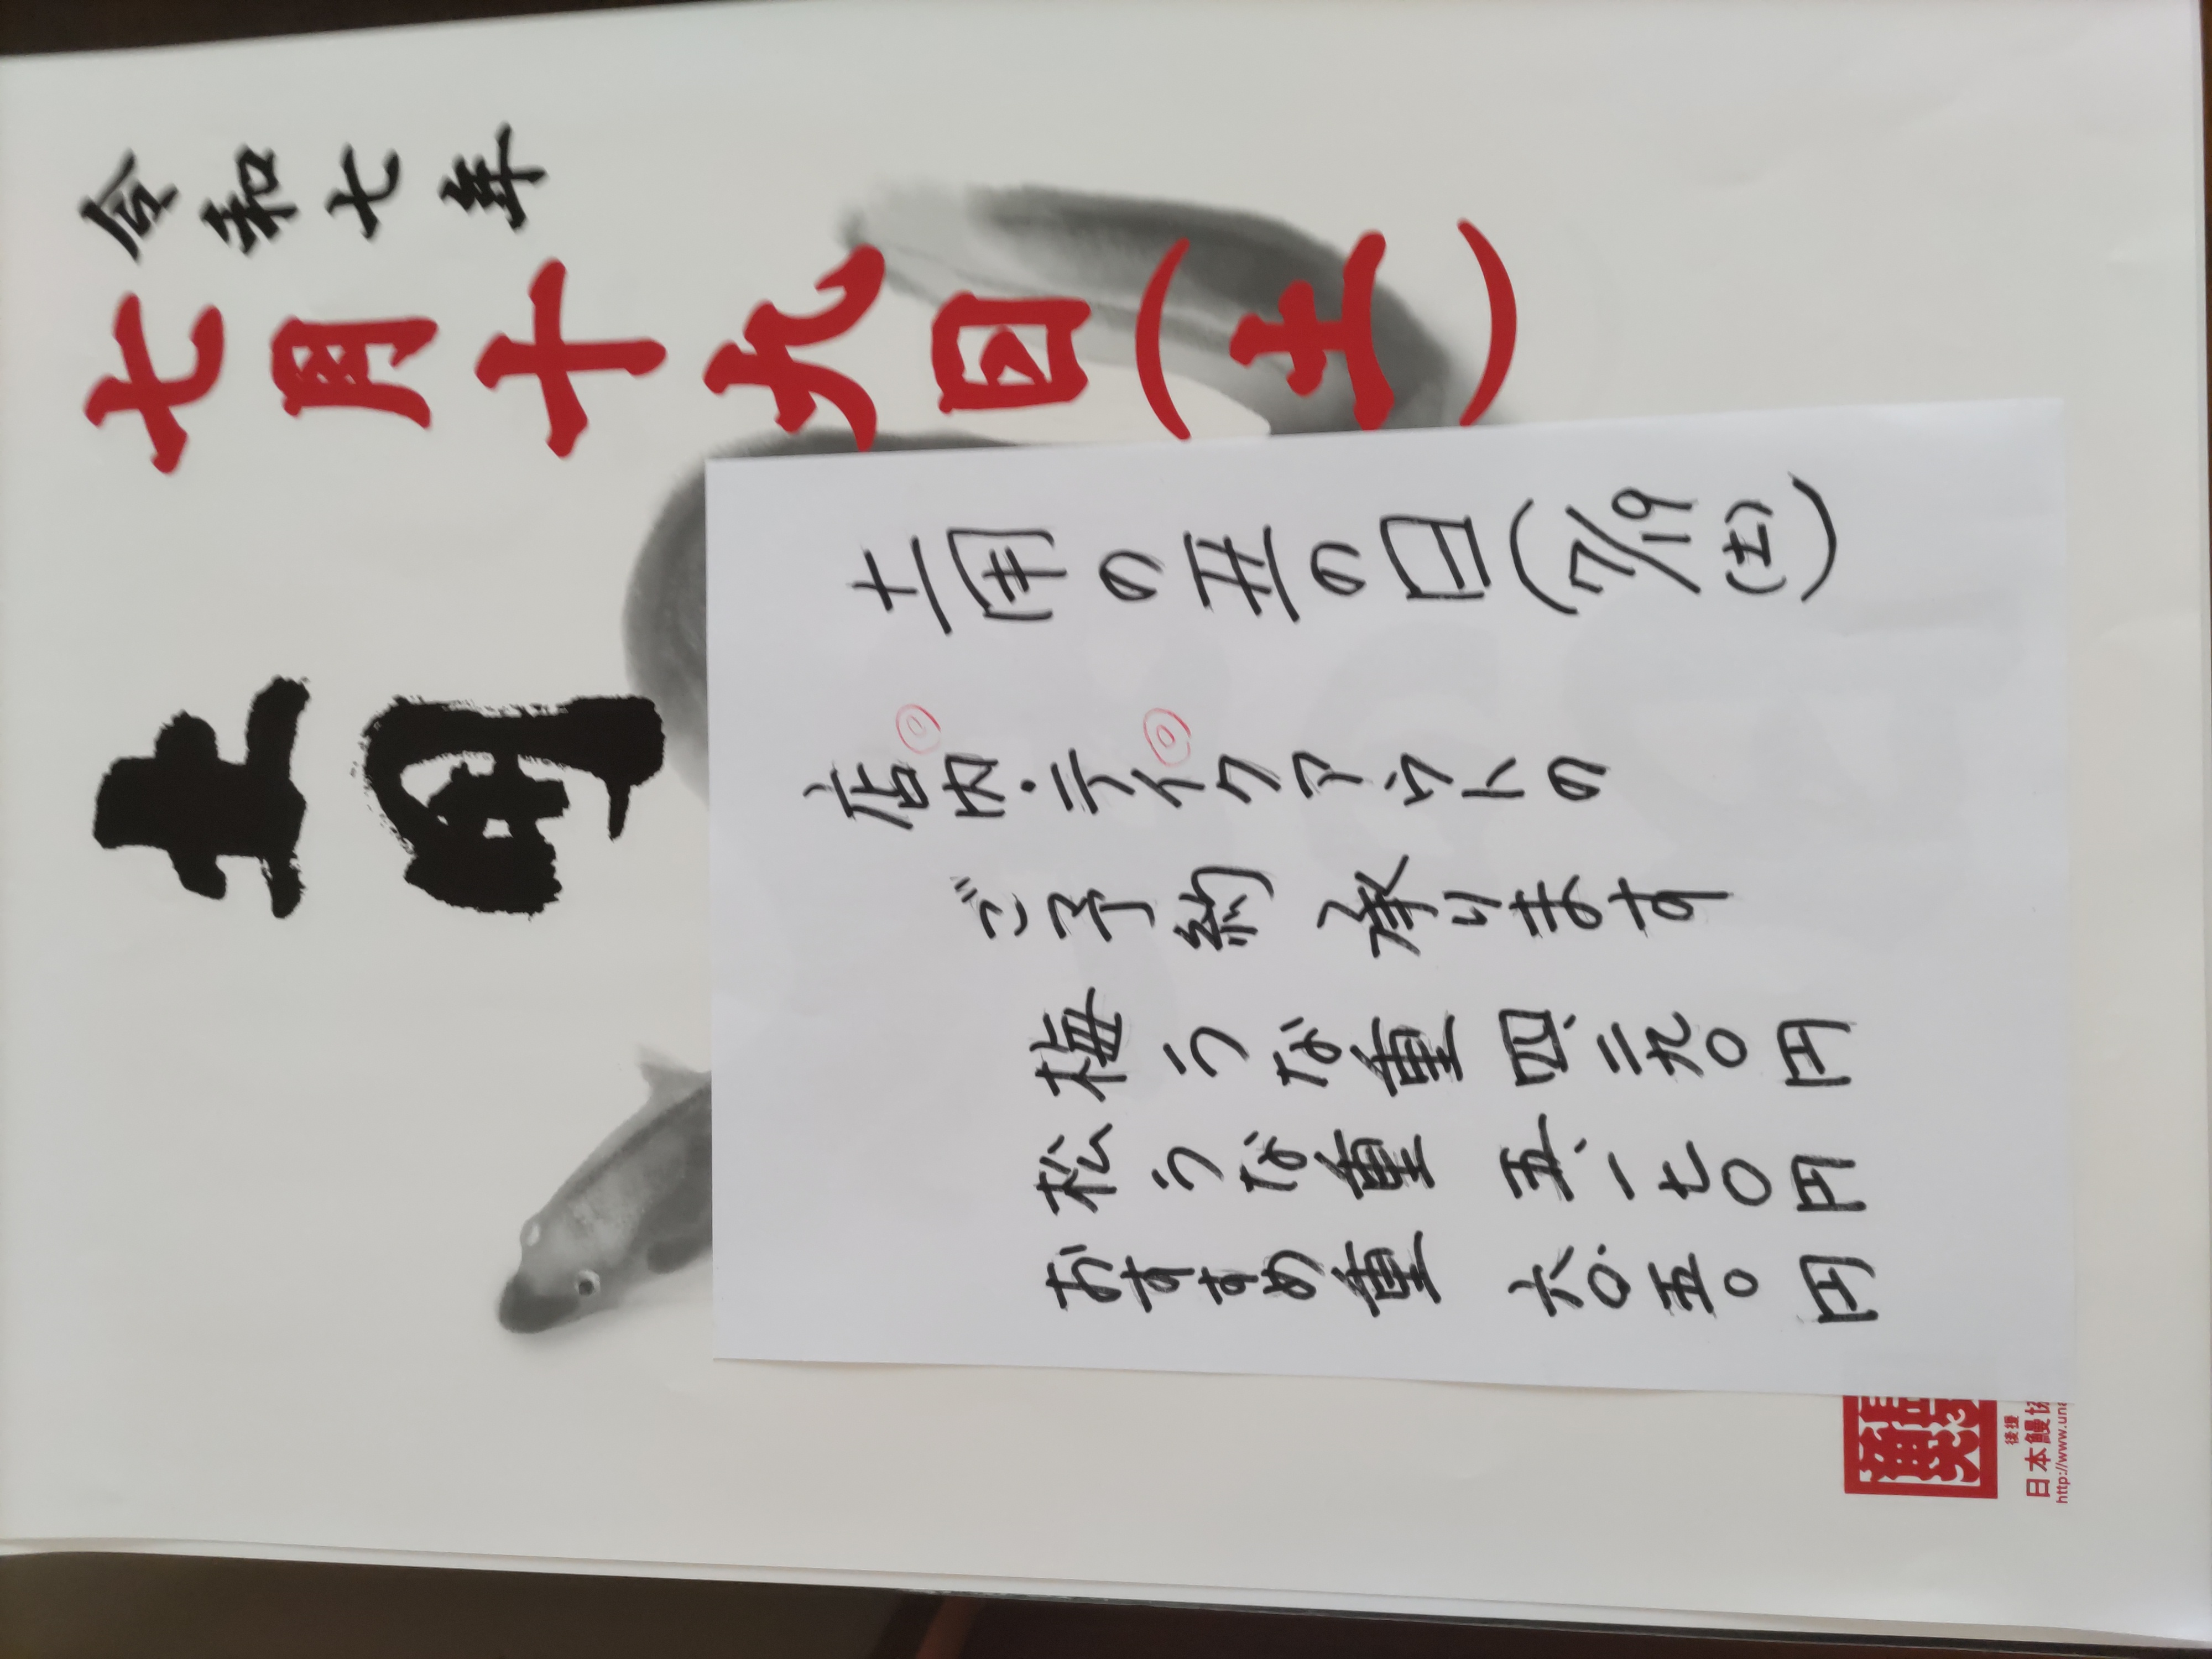 令和七年
七月十九日(土)
土用
土用の丑の日(7/19(土))
店内・テイクアウトの
ご予約 承ります
梅うな重 四、二九〇円
松うな重 五、一七〇円
おすすめ重 六、〇五〇円
後援
日本鰻協
http://www.una